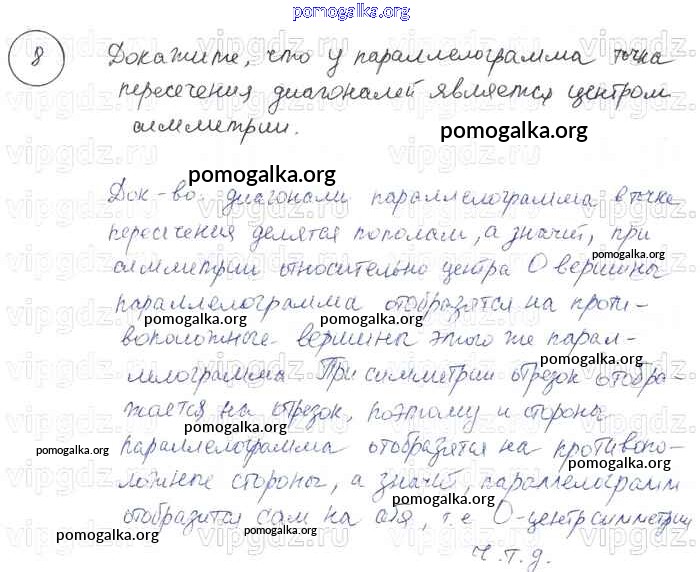 pomogalka.org
8 Докажите, что у параллелограмма точка
пересечения диагоналей является центром
симметрии.
pomogalka.org
pomogalka.org
Док-во: диагонали параллелограмма в точке
pomogalka.org
пересечения делятся пополам, а значит, при
pomogalka.org
симметрии относительно центра О вершины
pomogalka.org
параллелограмма отобразятся на проти-
pomogalka.org pomogalka.org
воположные вершины этого же парал-
pomogalka.org
лелограмма. При симметрии отрезок отобра-
жается на отрезок, поэтому и стороны
pomogalka.org
параллелограмма отобразятся на противопо-
pomogalka.org
pomogalka.org
ложные стороны, а значит, параллелограмм
pomogalka.org
отобразится сам на себя, т.е О-центр симметрии
pomogalka.org
ч.т.д.